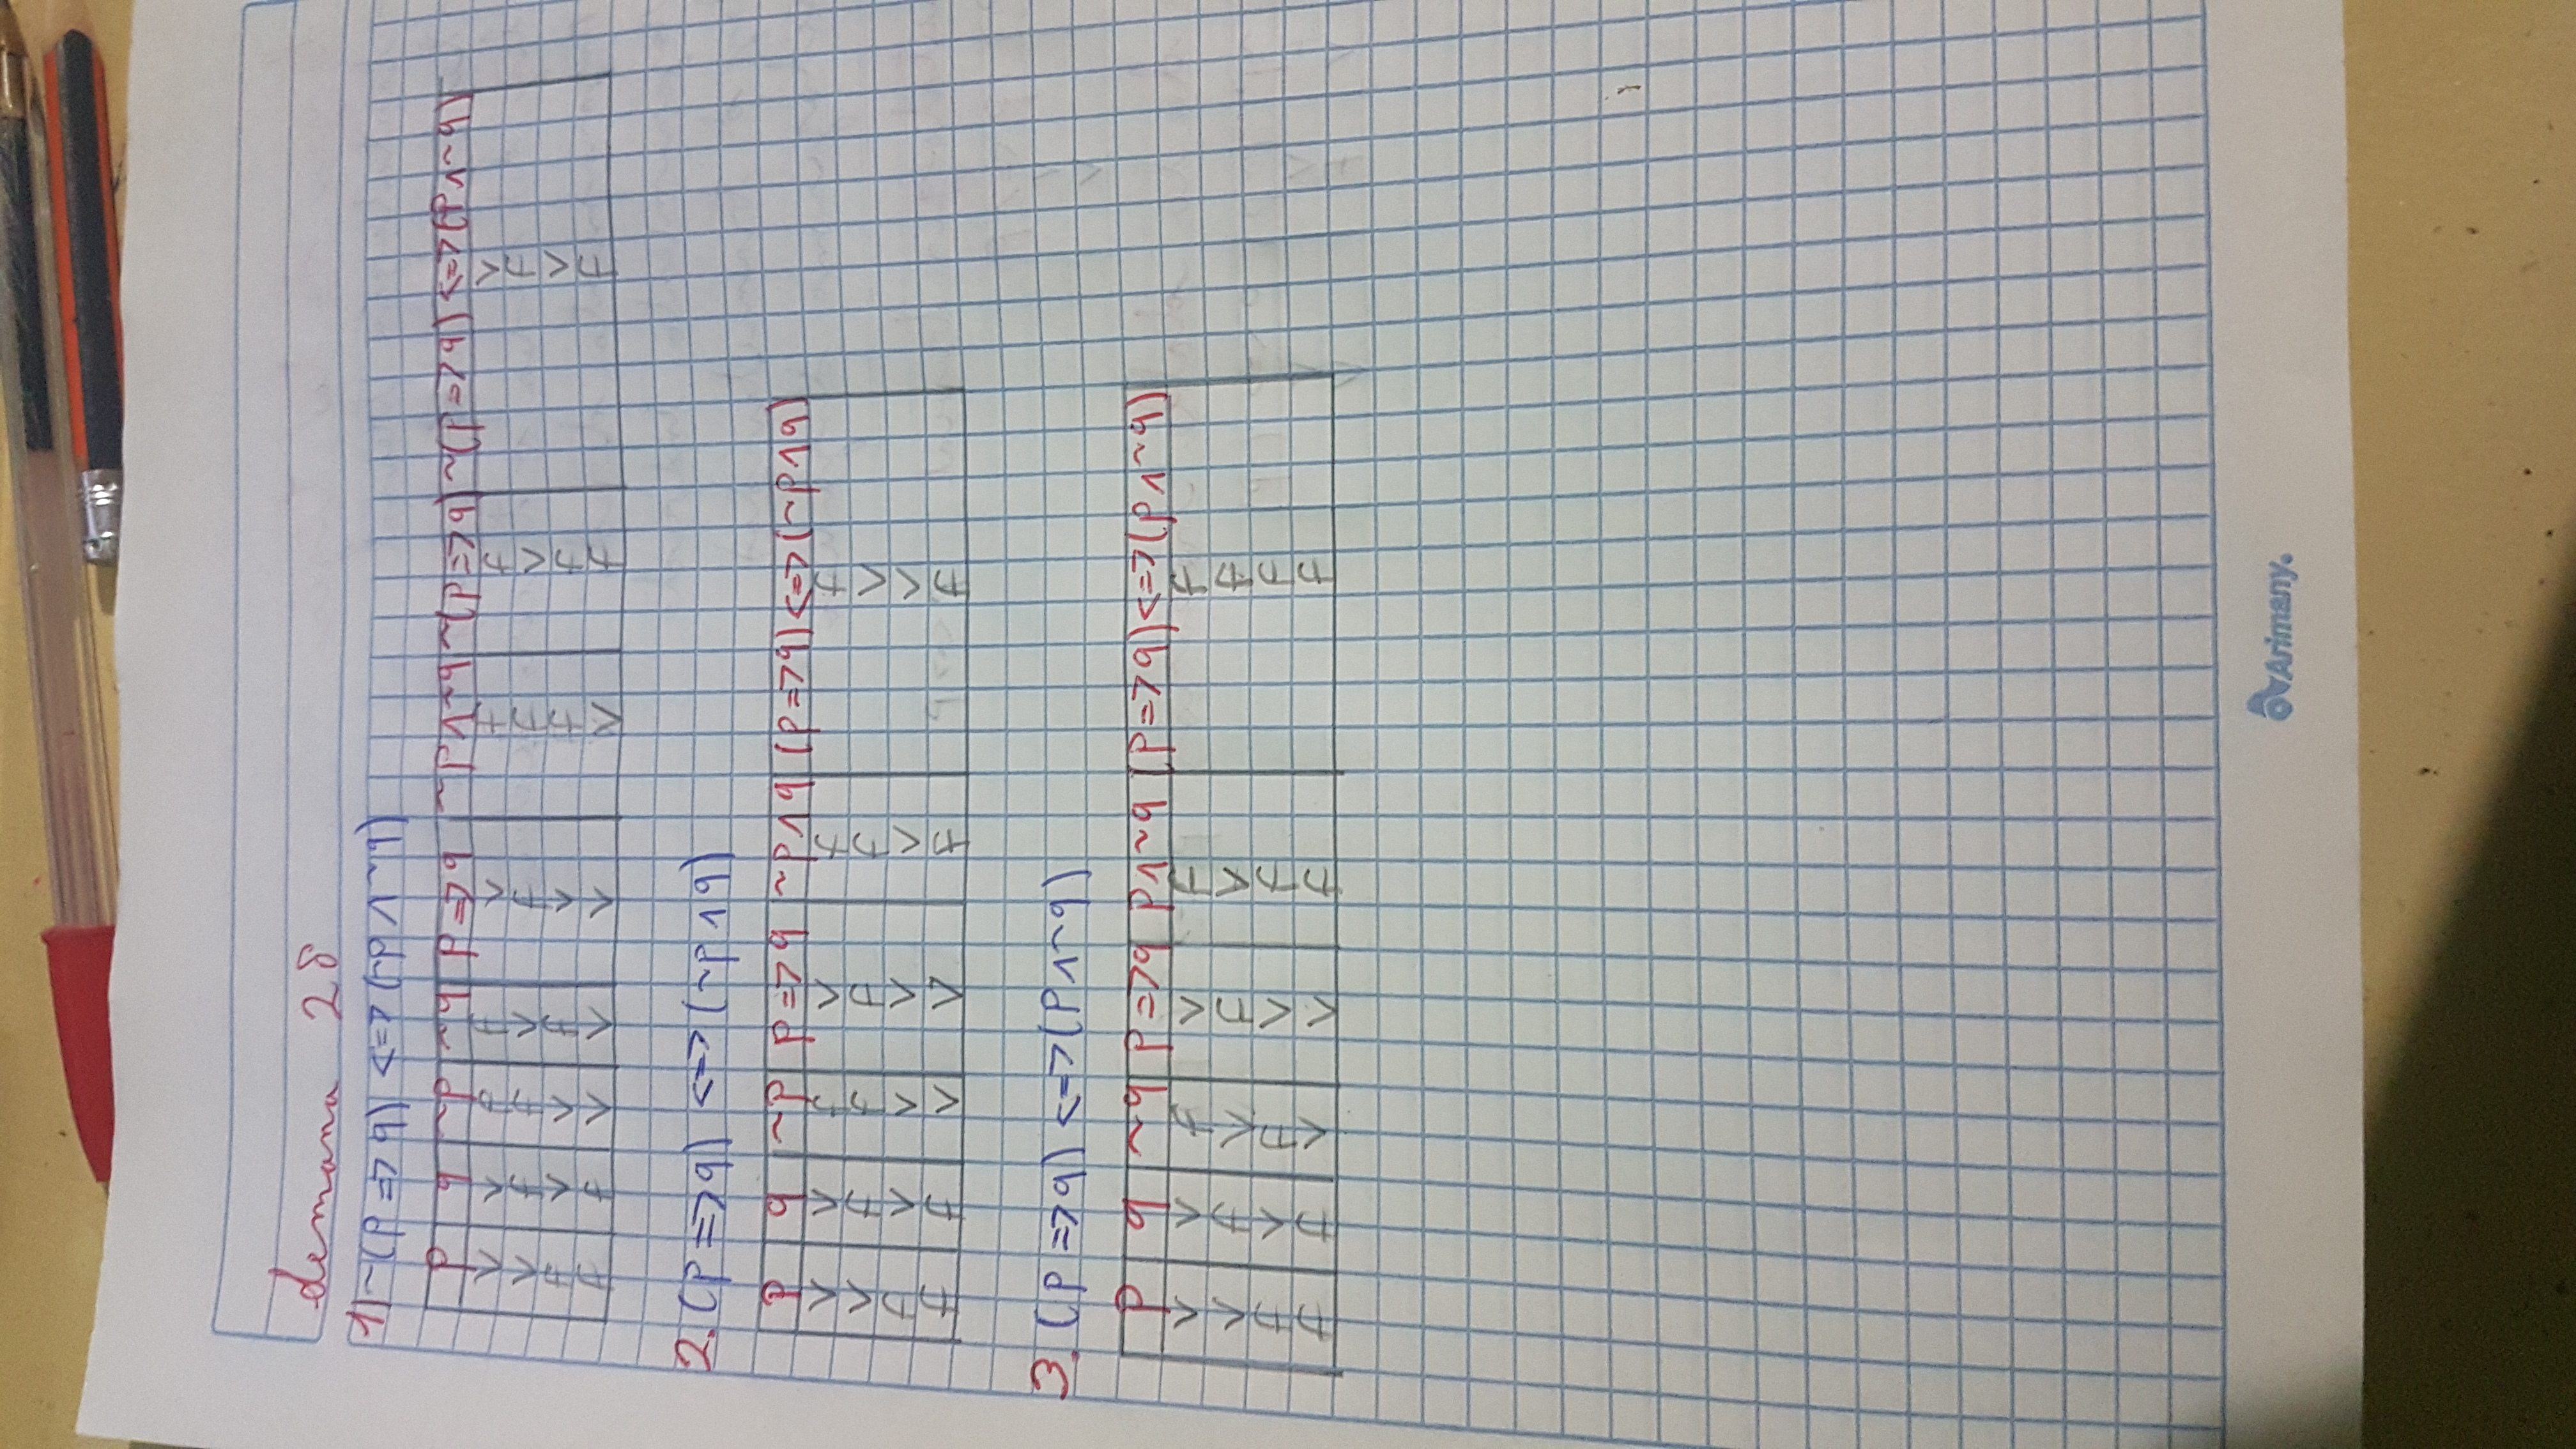 Semana 28
1) ~(p=>q) <=> (~p∧~q)
p q ~p ~q p=>q ~p∧~q ~(p=>q) ~(p=>q) <=>(p∧~q)
V V F F V F F V
V F F V F F V F
F V V F V F F V
F F V V V V F F
2. (p=>q) <=> (~p∧q)
p q ~p p=>q ~p∧q (p=>q)<=>(~p∧q)
V V F V F F
V F F F F V
F V V V V V
F F V V F F
3. (p=>q) <=>(p∧~q)
p q ~q p=>q p∧~q (p=>q)<=>(p∧~q)
V V F V F F
V F V F V F
F V F V F F
F F V V F F
Arimany.